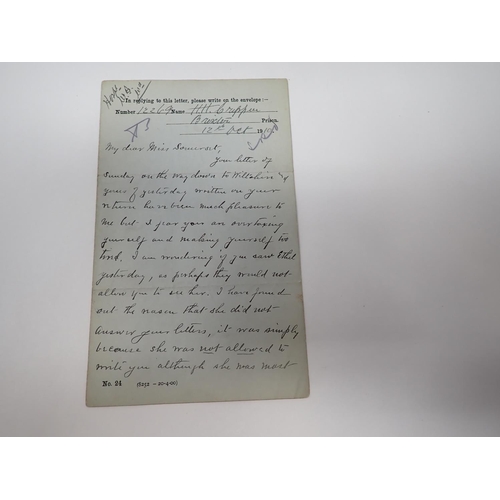 In replying to this letter, please write on the envelope:—
Number 12269 Name H H Crippen
Brixton Prison
12th Oct 1910
My dear Miss Somerset,
Your letter of
Sunday on the way down to Wiltshire &
yours of yesterday written on your
return have been much pleasure to
me but I fear you are overtaxing
yourself and making yourself too
tired. I am wondering if you saw Ethel
yesterday, as perhaps they would not
allow you to see her. I have found
out the reason that she did not
answer your letters, it was simply
because she was not allowed to
write you although she was most
No. 24 (6252—20-4-00)